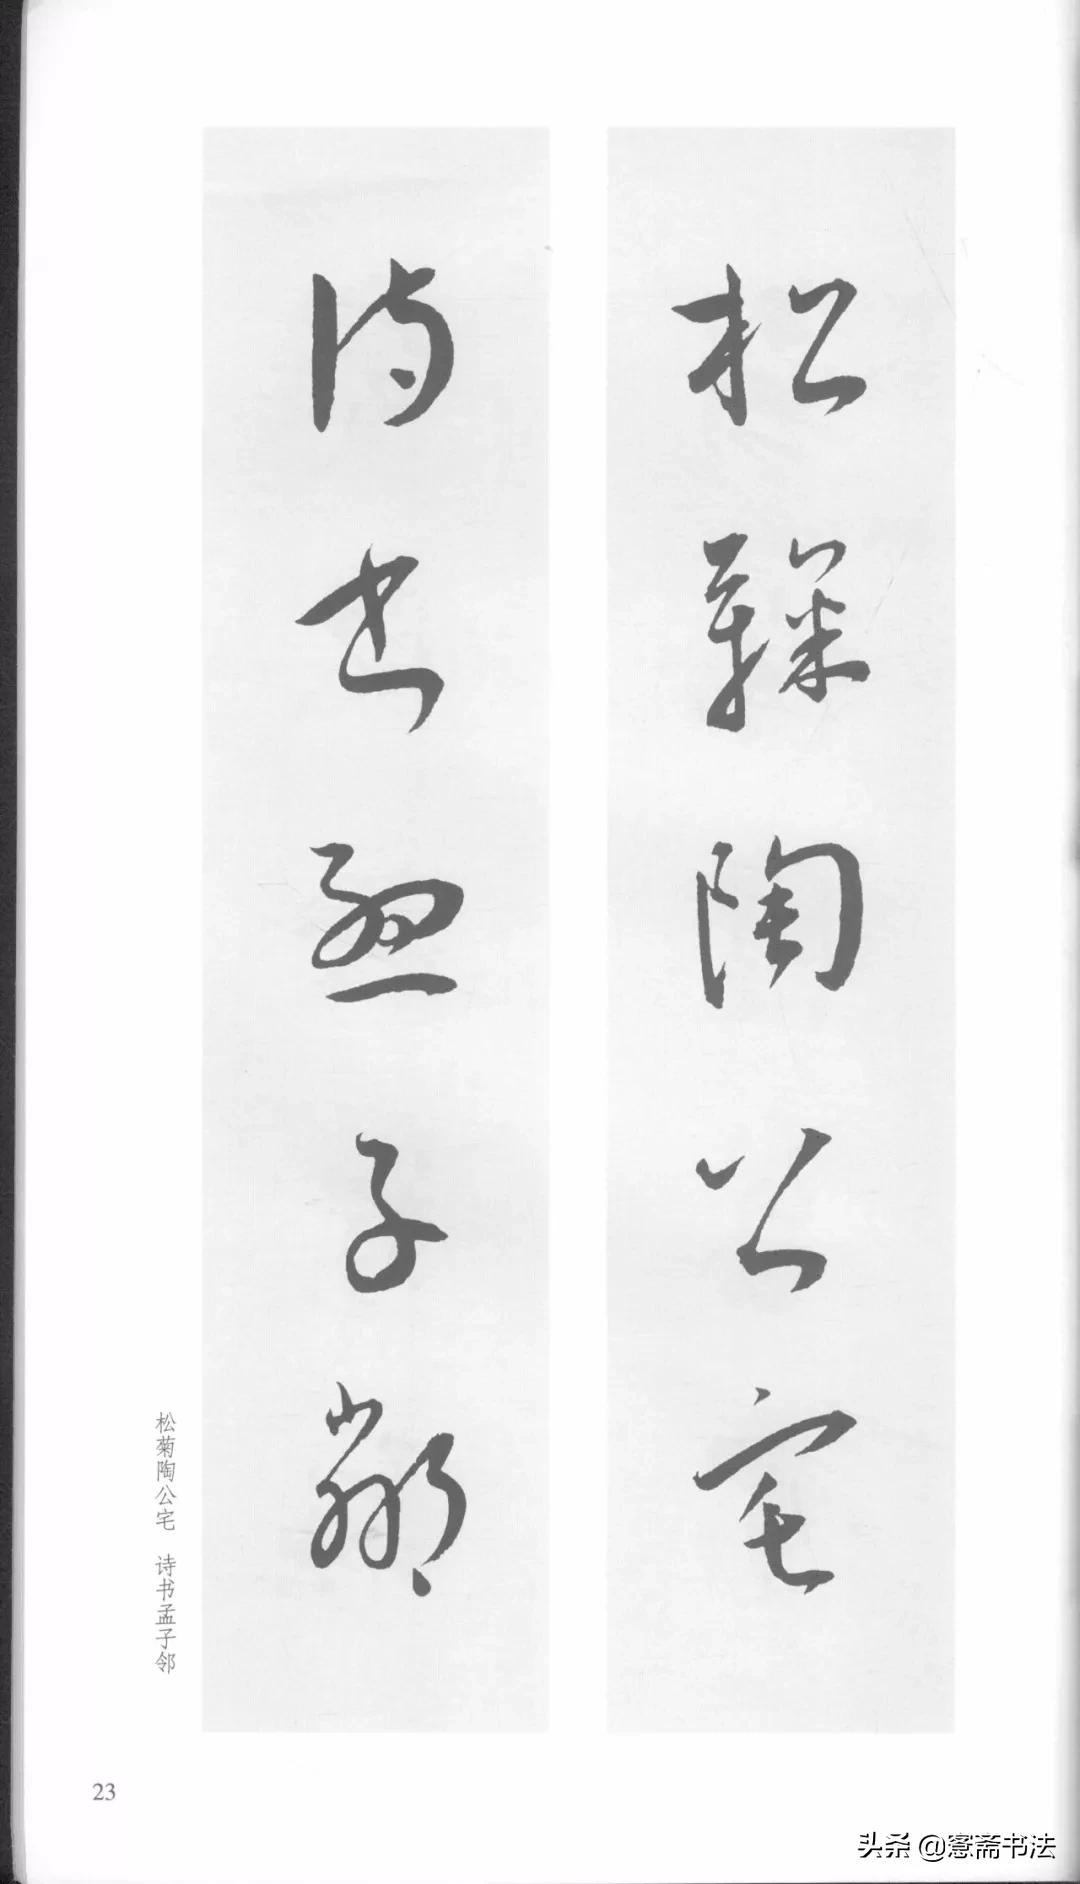 松鞠陶公宅
诗书孟子邻
松菊陶公宅 诗书孟子邻
23
头条 @寋斋书法